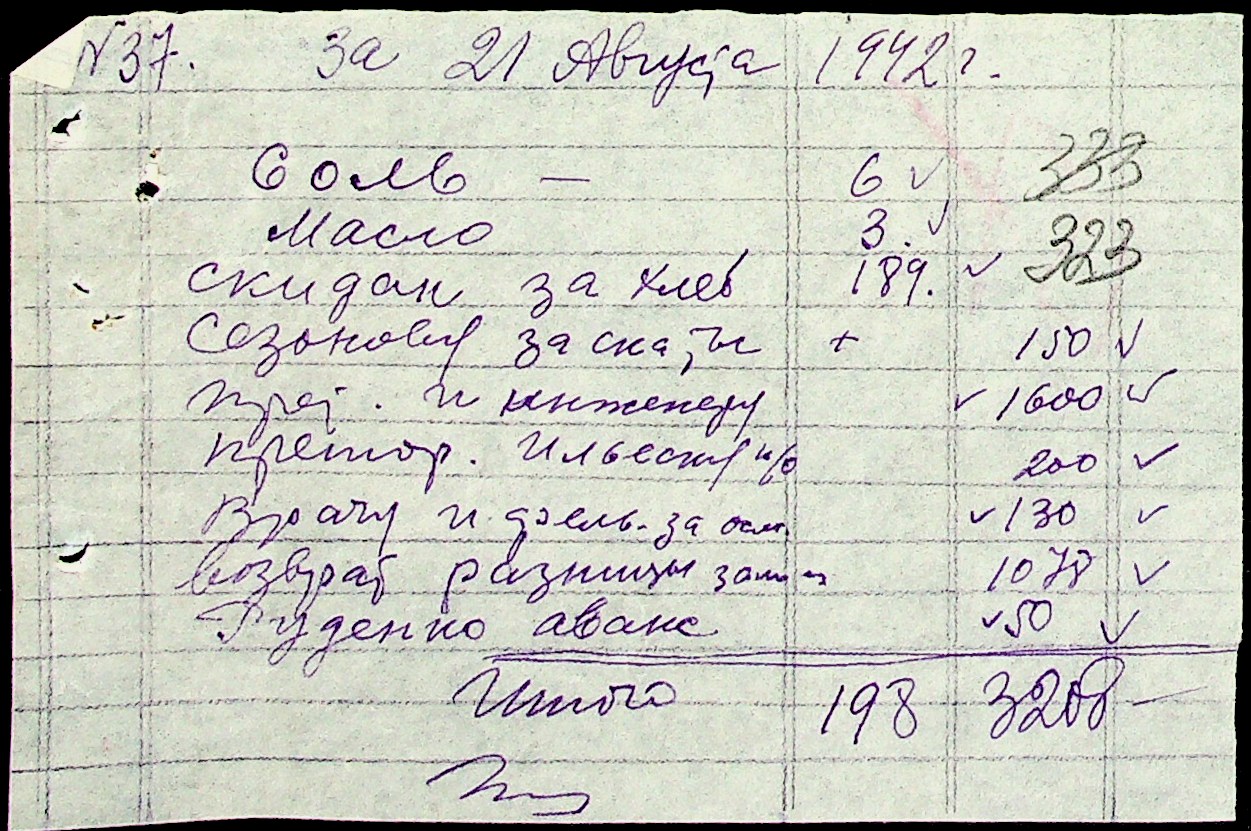 N37. За 21 Августа 1942 г.
333
Соль — 6 ✓
Масло 3. ✓
323
скидан за хлеб 189. ✓
Сезонову за скаты + 150 ✓
прет. и инженеру ✓ 1600 ✓
претор. Ильескул н/о 200 ✓
Врачу и фельд. за осм. ✓ 130 ✓
возврат разницы 1078 ✓
Руденко аванс ✓ 50 ✓
Итого 198 3208 —